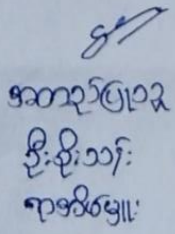 အတည်ပြုသူ
ဦးစိုးသန်း
ရာအိမ်မှူး